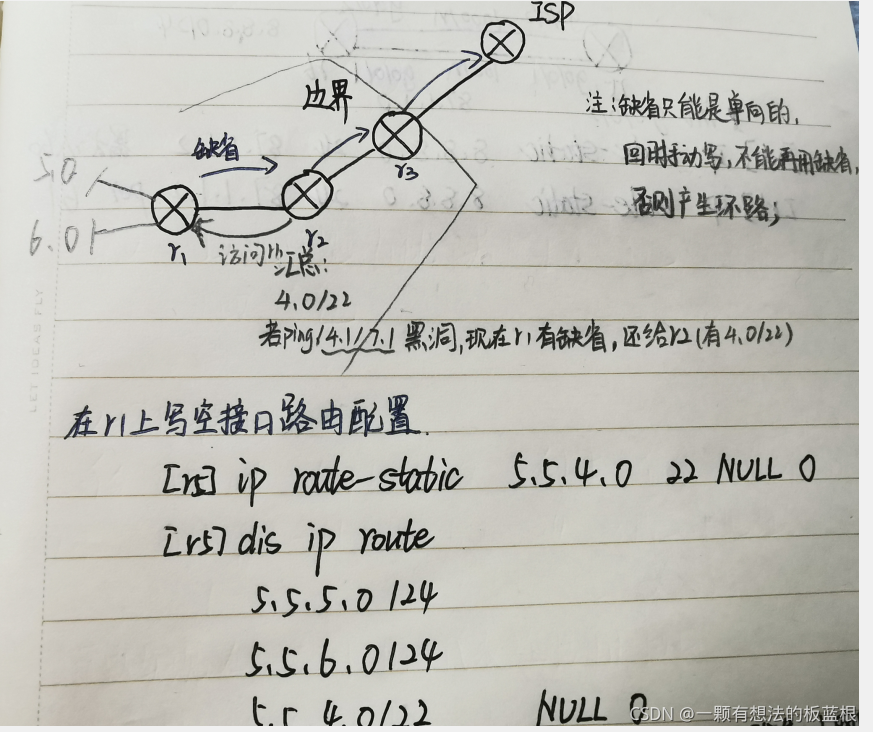 ISP
边界
注:缺省只能是单向的,
缺省
回时手动写,不能再用缺省,
5.0
r3
否则产生环路;
6.0
r1
r2
访问r1汇总:
4.0/22
若ping 4.1/7.1 黑洞,现在r1有缺省,还给r2(有4.0/22)
在r1上写空接口路由配置.
[r5] ip route-static 5.5.4.0 22 NULL 0
[r5] dis ip route
5.5.5.0/24
5.5.6.0/24
5.5.4.0/22 NULL 0
CSDN @一颗有想法的板蓝根